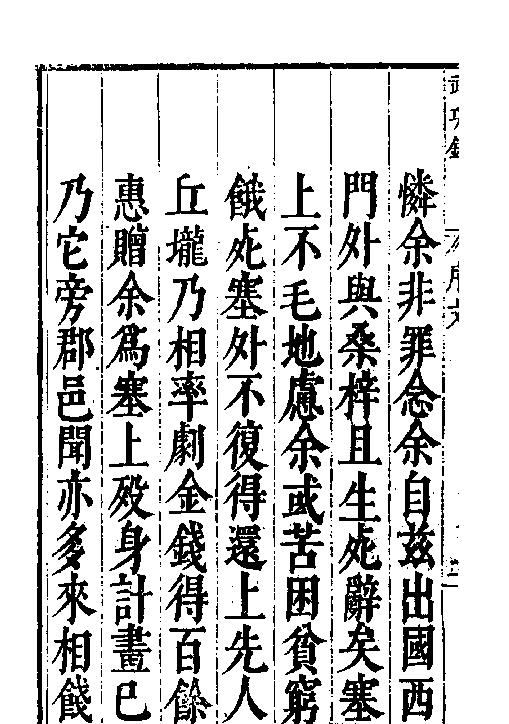 憐余非罪念余自茲出國西
門外與桑梓且生死辭矣塞
上不毛地慮余或苦困貧窮
餓死塞外不復得還上先人
丘壠乃相率劇金錢得百餘
惠贈余爲塞上殁身計畫已
乃它旁郡邑聞亦多來相餞